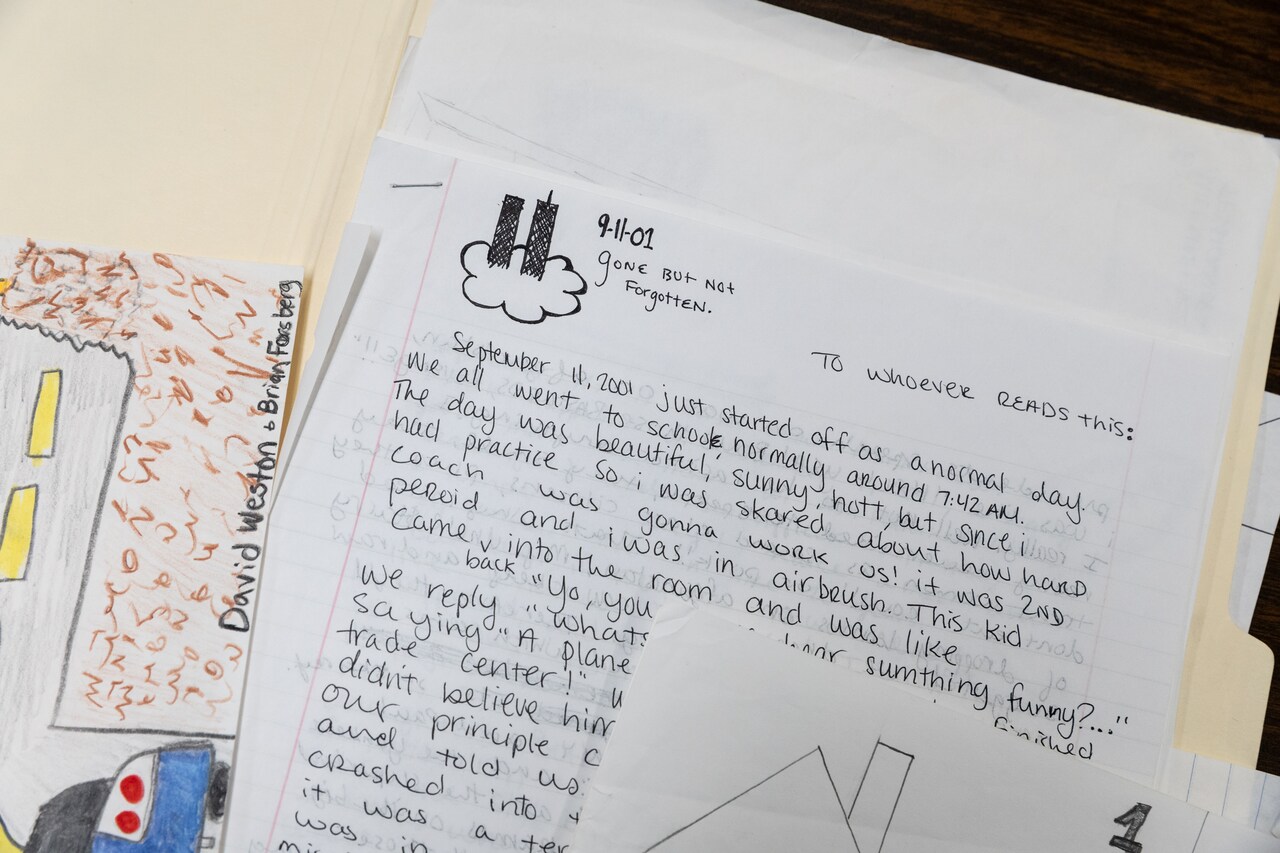 9-11-01
gONE BUT NOt
FORgOttEN.
TO WHOEVER READS this:
September 11, 2001 just started off as a normal day.
We all went to school normally around 7:42 AM.
The day was beautiful, sunny, hott, but since i
had practice so i was skared about how hard
coach was gonna work us! it was 2ND
peroid and i was in airbrush. This kid
came into the room and was like
"Yo, you hear sumthing funny?..."
We reply back "whats finished
saying "A plane
trade center!"
didnt believe him
our principle
and told us
crashed into
it was a
was in
David Weston & Brian Forsberg
1